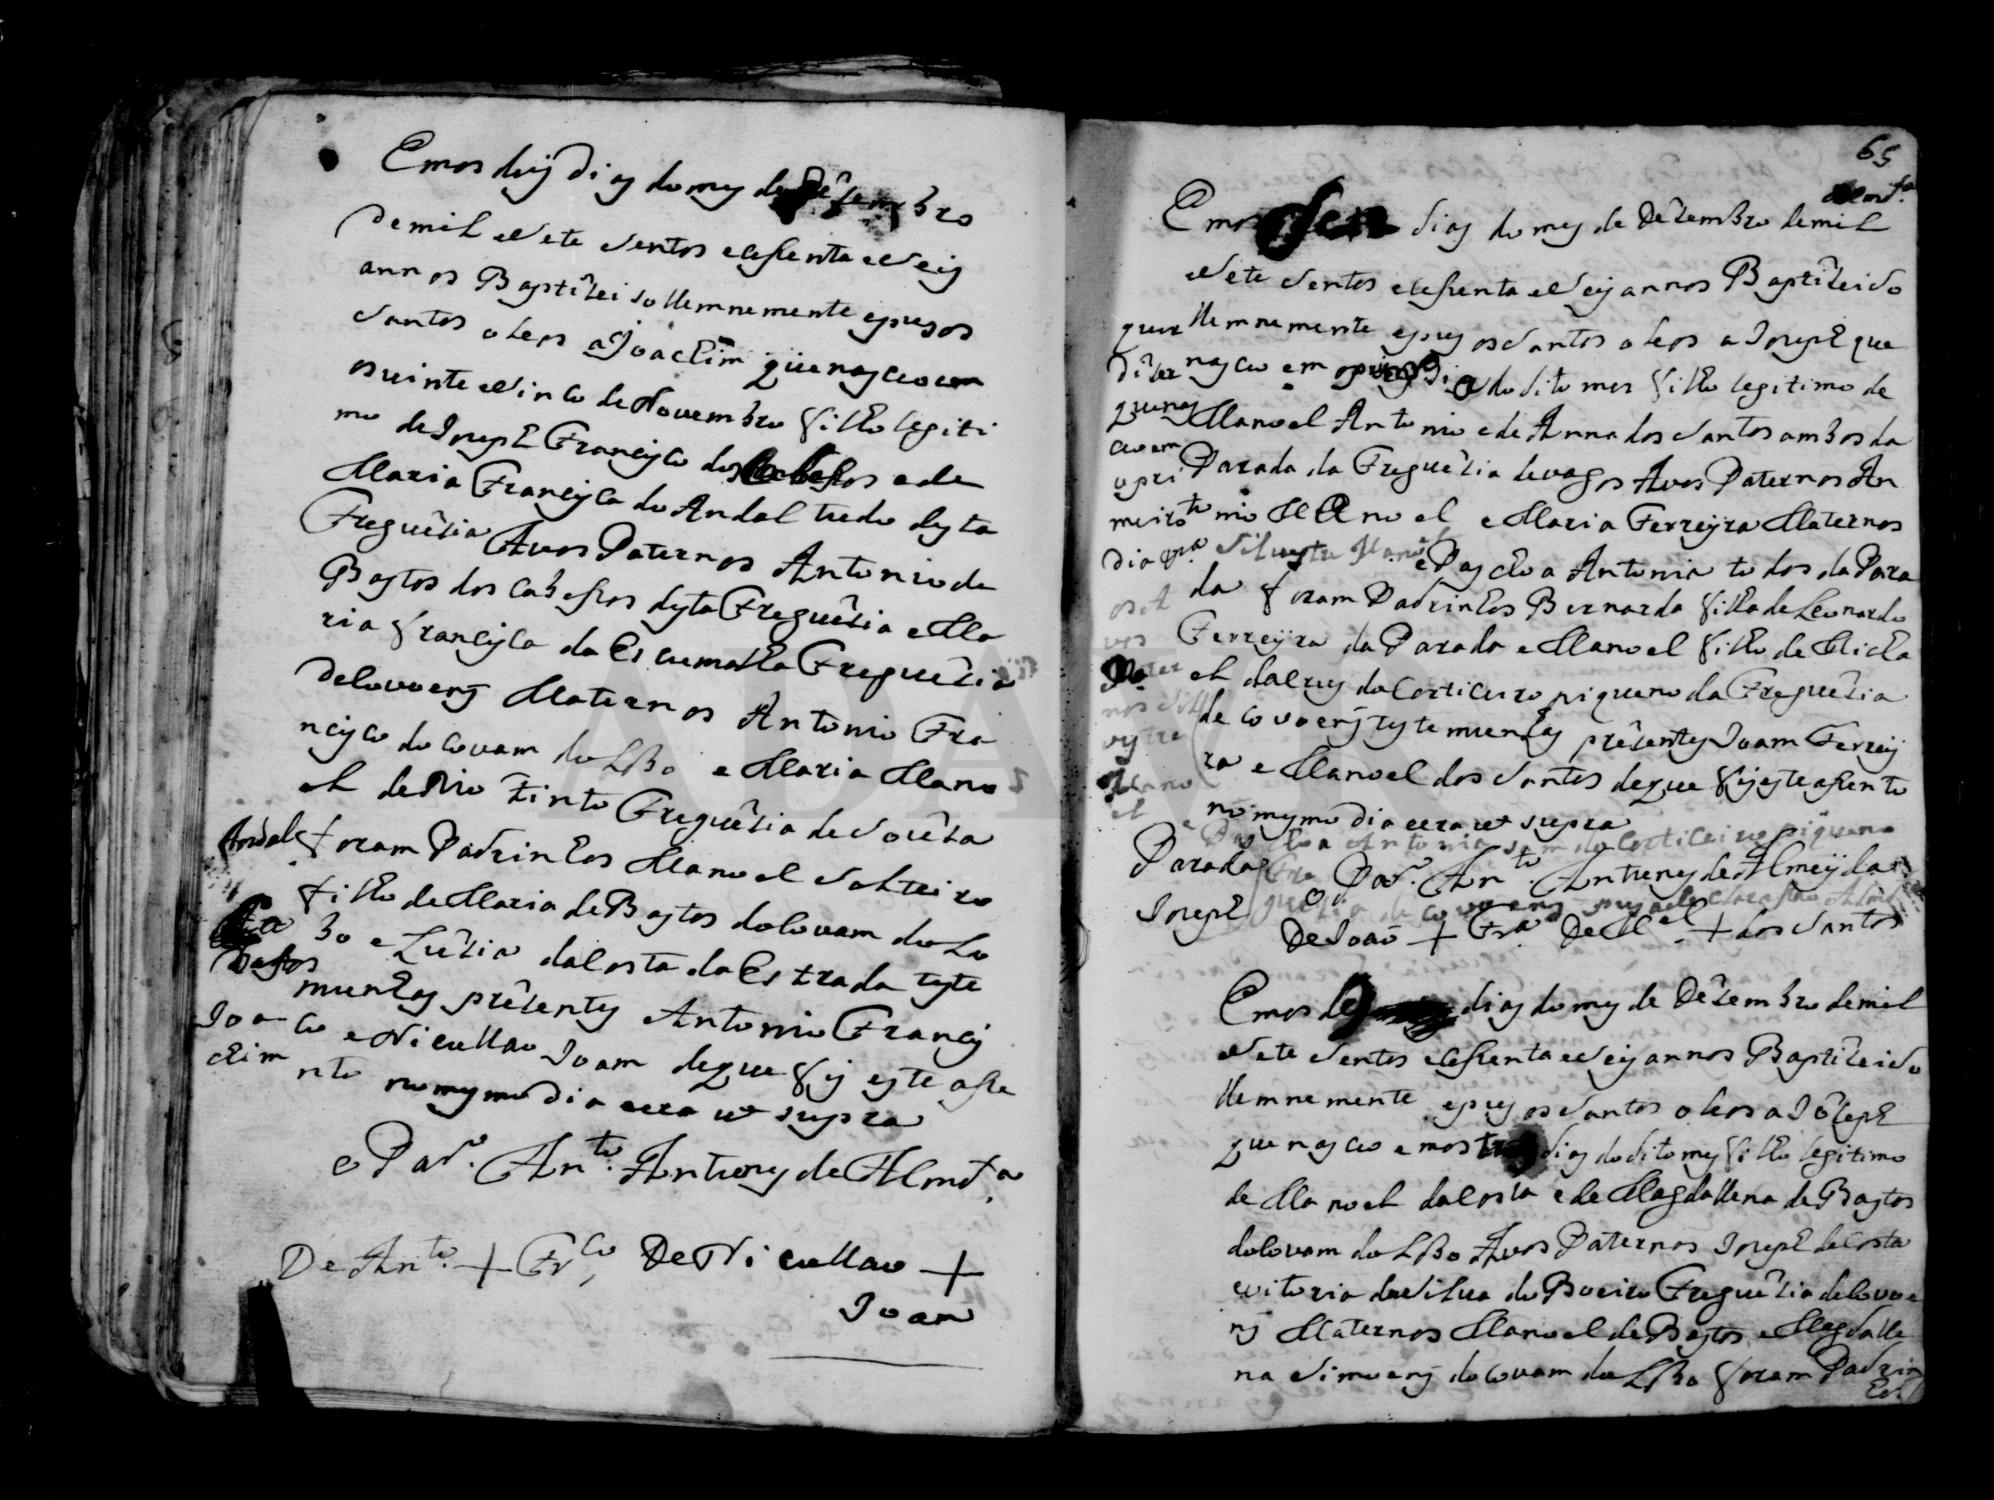 Emos dois Dias do mes de Dezembro
de mil e sete sentos e cesenta e seis
annos Baptizei sollemnemente e pus os
santos oleos a Joachim que nasceo em
os vinte e sinco de Novembro filho legiti
mo de Joseph Francisco dos e de
Maria Francisca do Andal tudo desta
Freguezia Avos Paternos Antonio de
Bastos dos Cabessos desta Freguezia e Ma
ria francisca da Escumalha Freguezia
de Covoens Maternos Antonio Fra
ncisco do Covam do Lobo e Maria Mano
el de Rio tinto Freguezia de Souza
foram Padrinhos Manoel solteiro
filho de Maria de Bastos do Covam do Lo
bo e Luzia da Costa da Estrada teste
munhas prezentes Antonio Francis
co e Nicullao Joam de que fis este asse
nto no mesmo dia e era ut supra
o Pad.e Ant.o Antunes de Almd.a
De Ant.o + Fr.co De Nicullao +
Joam
Andal
Joa
chim
65
Almd.a
Emos dias do mes de Dezembro de mil
e sete sentos e cesenta e seis annos Baptizei so
llemnemente e pus os santos oleos a Joseph que
nasceo em o do dito mes filho legitimo de
Manoel Antonio e de Anna dos santos ambos da
Parada da Freguezia de Vagos Avos Paternos An
to nio Manoel e Maria Ferreyra Maternos
Silvestre Manoel e Paschoa Antonia todos da Para
da foram Padrinhos Bernarda filha de Leonardo
Ferreyra da Parada e Manoel filho de Micha
el da Crus do Corticeiro piqueno da Freguezia
de Covoens testemunhas prezentes Joam Ferrey
ra e Manoel dos santos de que fis este assento
no mesmo dia e era ut supra
o Pad.e Ant.o Antunes de Almeyda
De Joaõ + Fr.a De M.el + dos santos
quero
dizer
que nas
ceo em
o pri
meiro
dia
os A
vos
Mater
nos Sil
vestre
Mano
el e
Paschoa Antonia sam do Corticeiro piqueno
Parada
Joseph
Emos dias do mes de Dezembro de mil
e sete sentos e cesenta e seis annos Baptizei so
llemnemente e pus os santos oleos a Jozeph
que nasceo emos dias do dito mes filho legitimo
de Manoel da Costa e de Magdallena de Bastos
do Covam do Lobo Avos Paternos Joseph da Costa
e vitoria da Silva do Boeiro Freguezia de Covoe
ns Maternos Manoel de Bastos e Magdalle
na Simoens do Covam do Lobo foram Padrin
hos